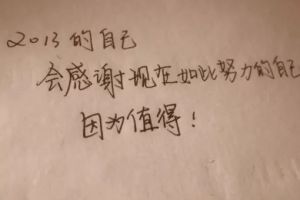 2013的自己
会感谢现在如此努力的自己
因为值得!